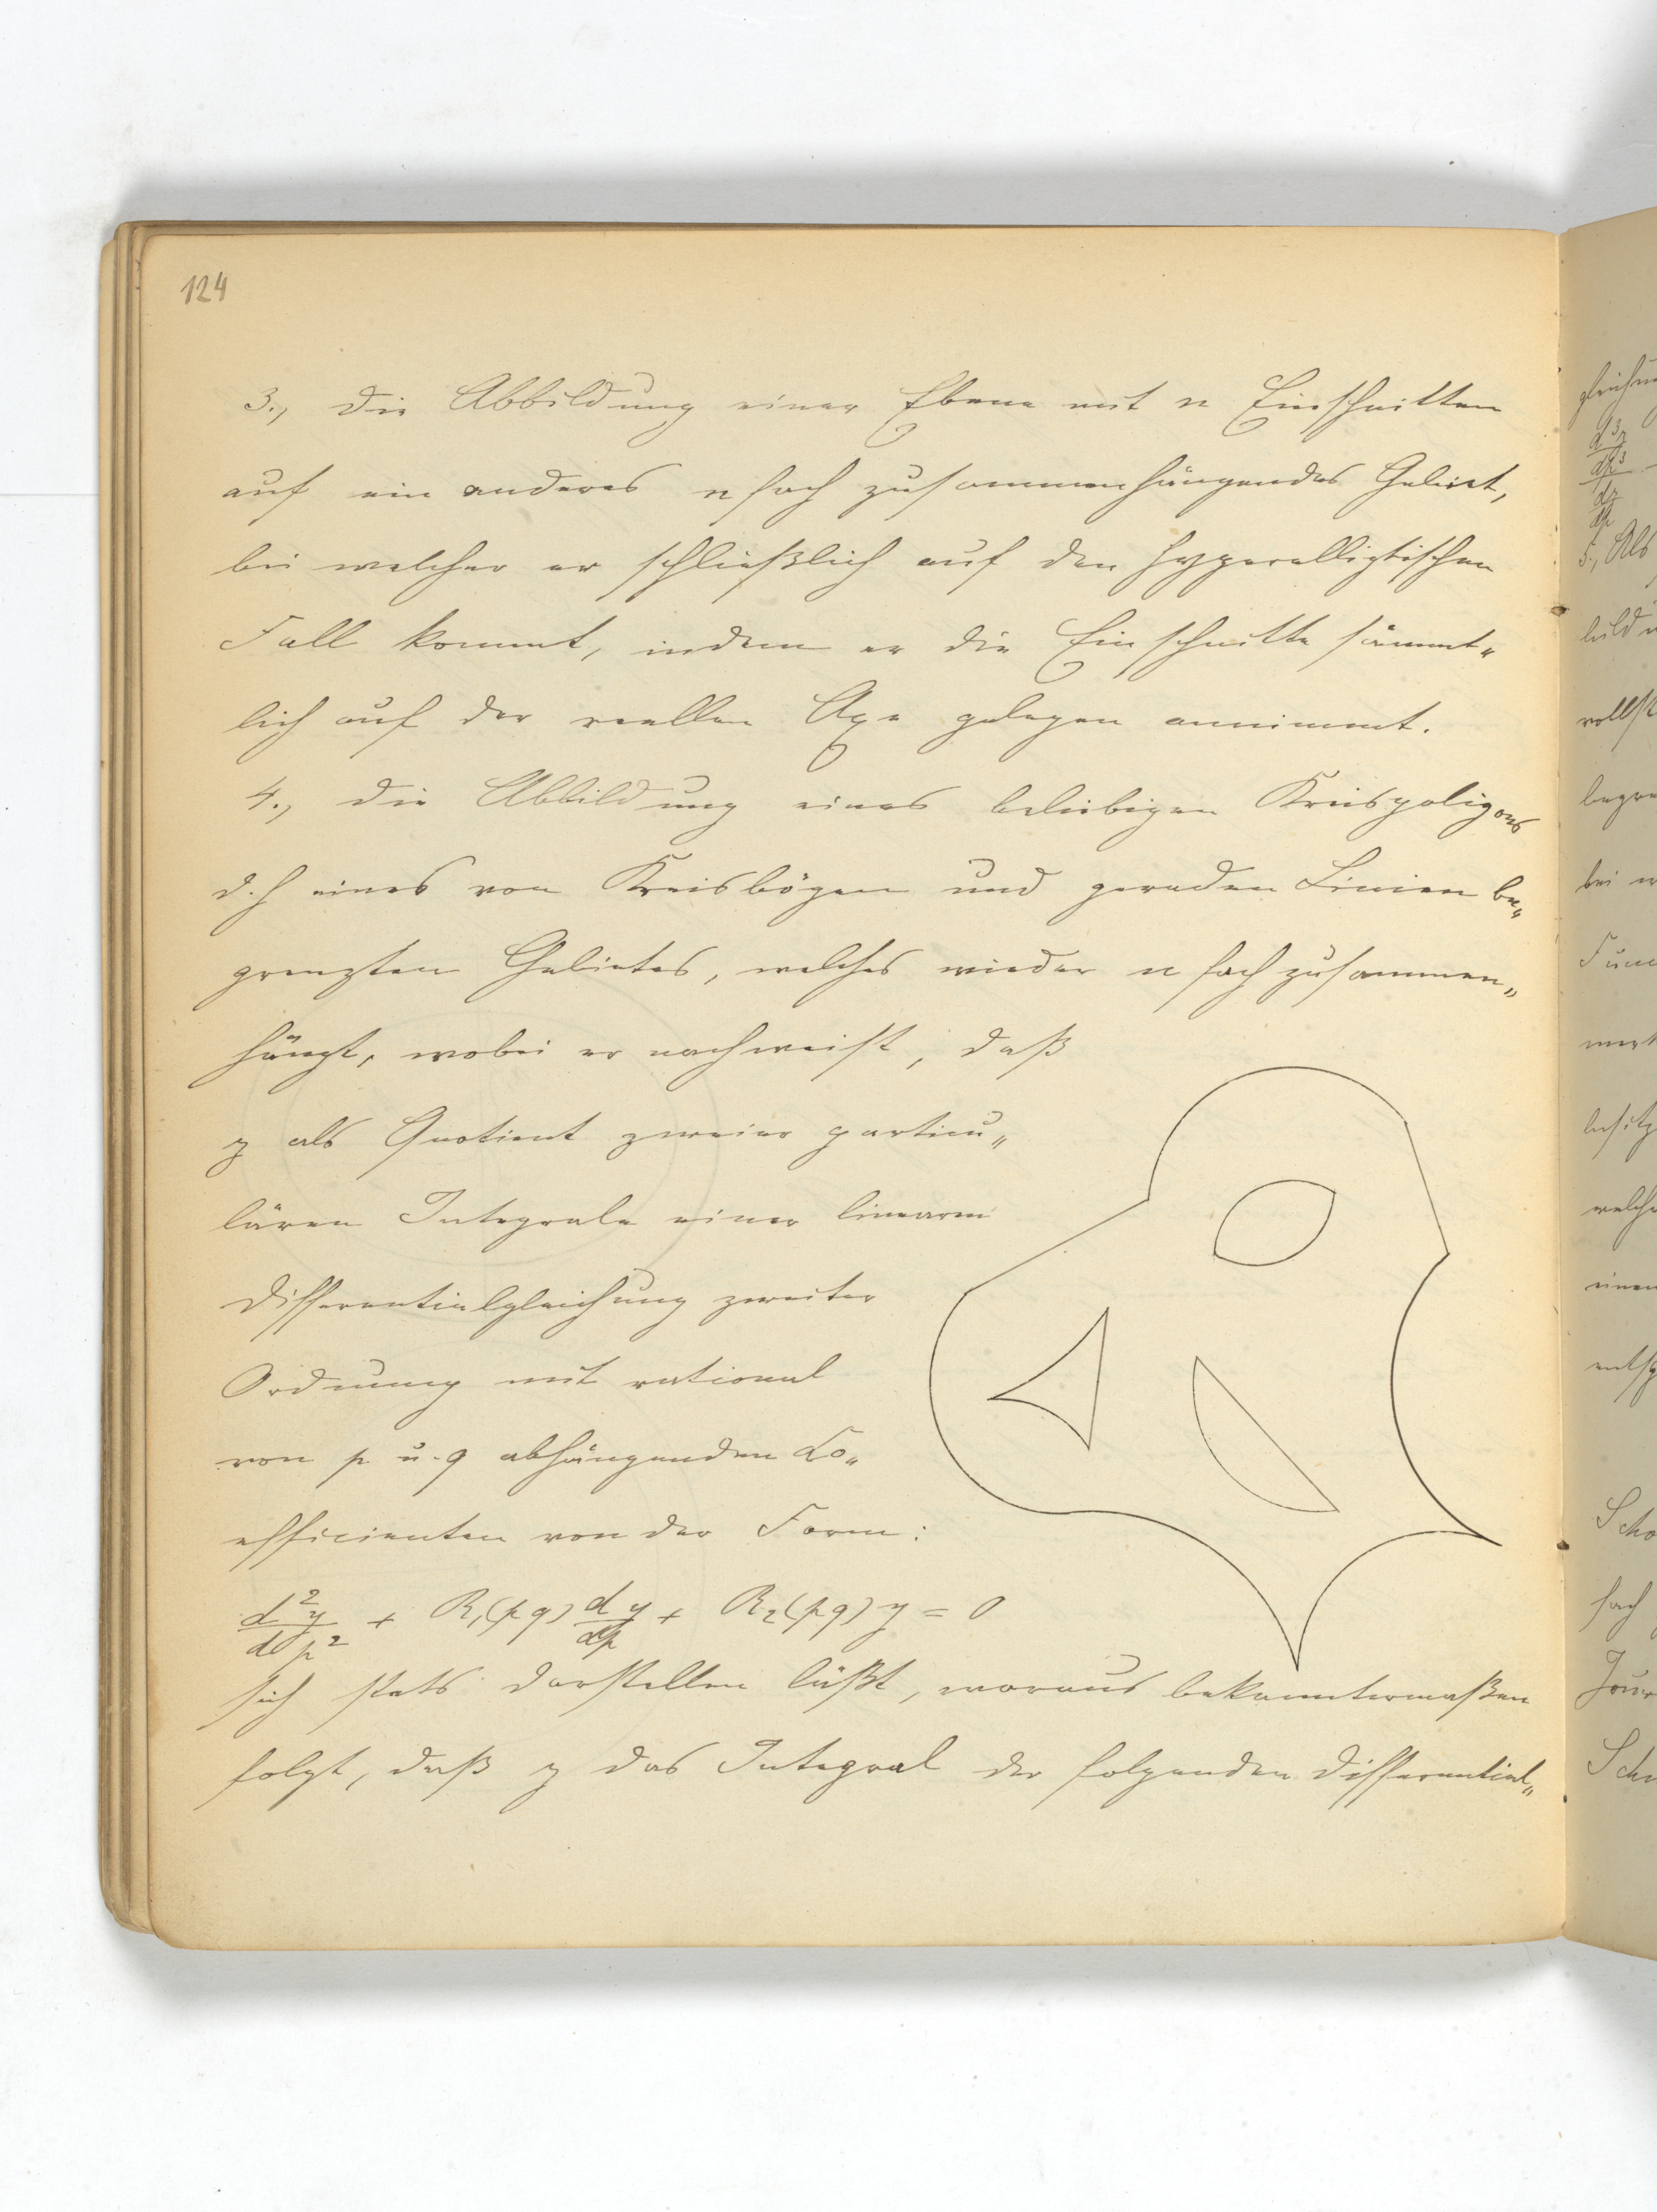 124
3., Die Abbildung einer Ebene mit n Einschnitten
auf ein anderes n fach zusammenhängendes Gebiet,
bei welcher er schließlich auf den hyperelliptischen
Fall kommt, indem er die Einschnitte sämmt„
lich auf der reellen Axe gelegen annimmt.
4., Die Abbildung eines beliebigen Kreispoligons
d.h eines von Kreisbögen und geraden Linien be„
grenzten Gebietes, welches wieder n fach zusammen„
hängt, wobei er nachweist, daß
z als Quotient zweier particu„
lären Integrale einer linearen
Differentialgleichung zweiter
Ordnung mit rational
von p u. q abhängenden Co„
efficienten von der Form:
d²y/dp² + R₁(pq) dy/dp + R₂(pq) y = 0
sich stets darstellen läßt, woraus bekanntermaßen
folgt, daß z das Integral der folgenden Differential„